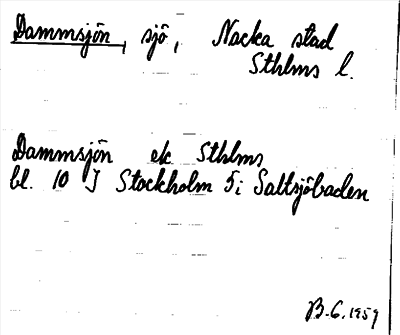 Dammsjön, sjö, Nacka stad
Sthlms l.
Dammsjön ek Sthlms
bl. 10 J Stockholm 5i Saltsjöbaden
B.G. 1959